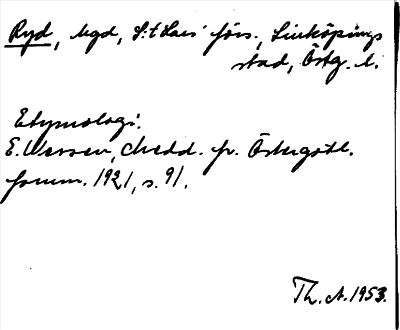 Ryd, bgd, S:t Lars' förs., Linköpings
stad, Östg. l.
Etymologi:
E. Wessén, Medd. fr. Östergötl.
fornm. 1921, s. 91.
Th. A. 1953.